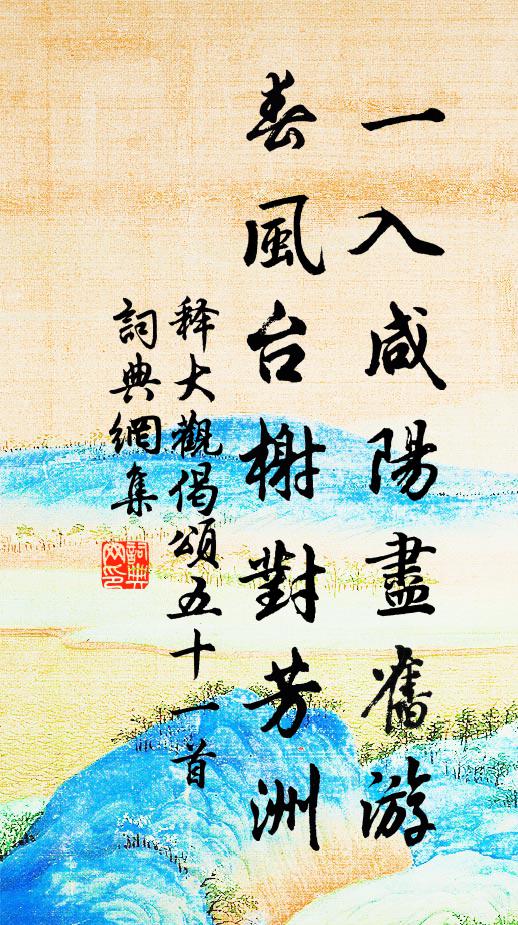 一入咸陽盡舊游
春風台榭對芳洲
释大觀偈頌五十一首
詞典網集
詞典网印